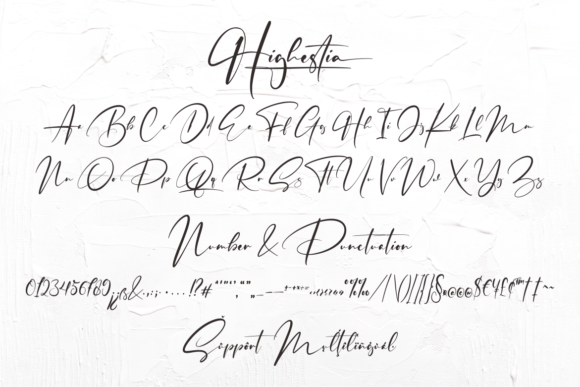 Highestia
Aa Bb Cc Dd Ee Ff Gg Hh Ii Jj Kk Ll Mm
Nn Oo Pp Qq Rr Ss Tt Uu Vv Ww Xx Yy Zz
Number & Punctuation
0123456789
Support Multilingual